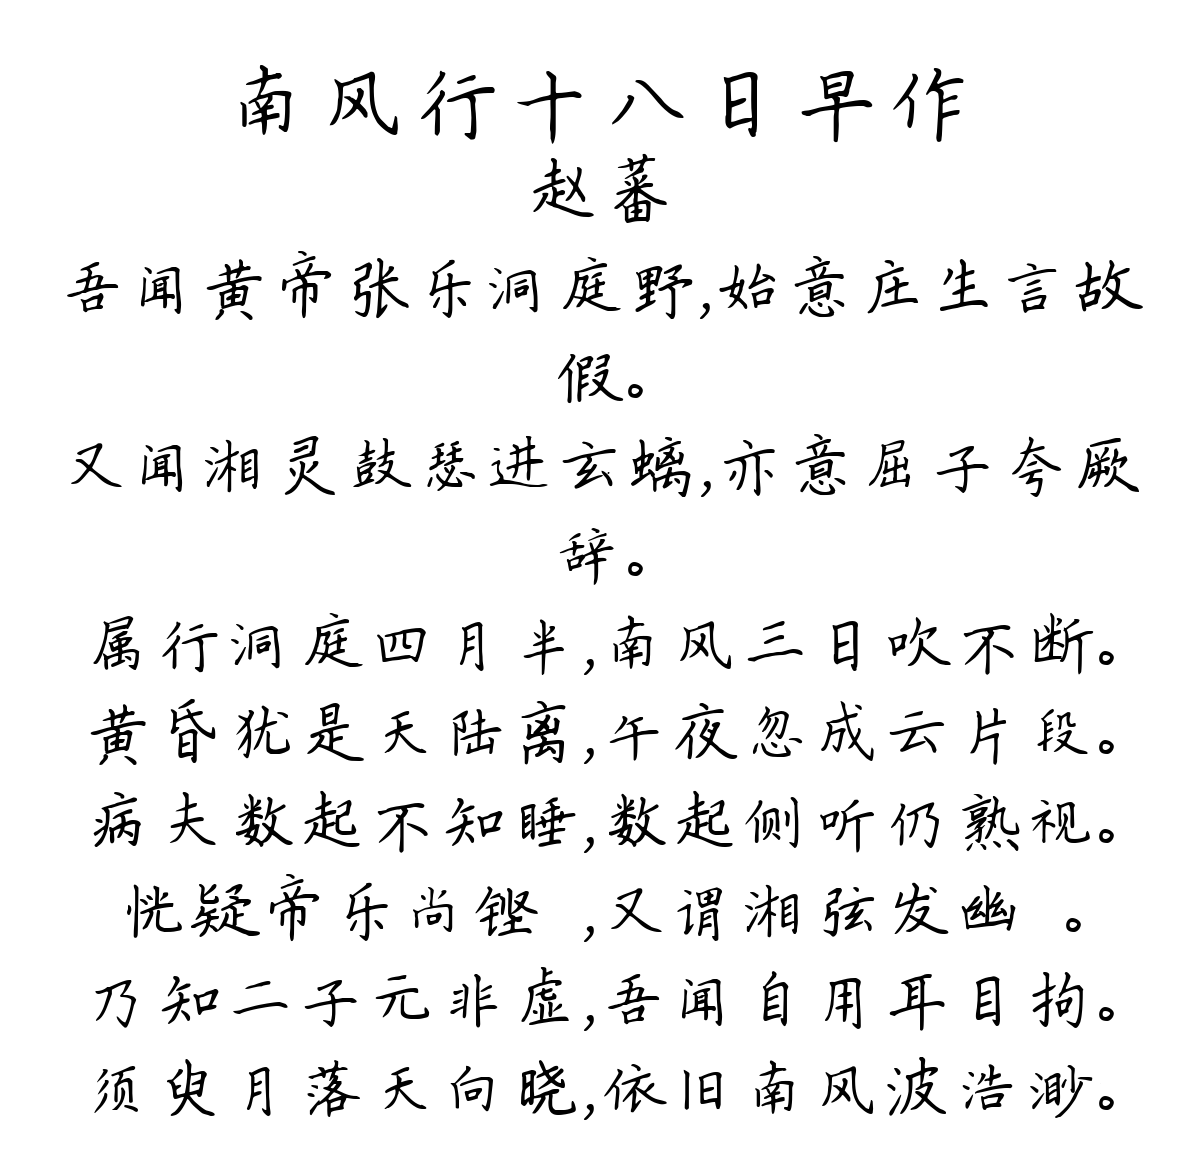 南风行十八日早作
赵蕃
吾闻黄帝张乐洞庭野,始意庄生言故
假。
又闻湘灵鼓瑟进玄螭,亦意屈子夸厥
辞。
属行洞庭四月半,南风三日吹不断。
黄昏犹是天陆离,午夜忽成云片段。
病夫数起不知睡,数起侧听仍熟视。
恍疑帝乐尚铿 ,又谓湘弦发幽 。
乃知二子元非虚,吾闻自用耳目拘。
须臾月落天向晓,依旧南风波浩渺。